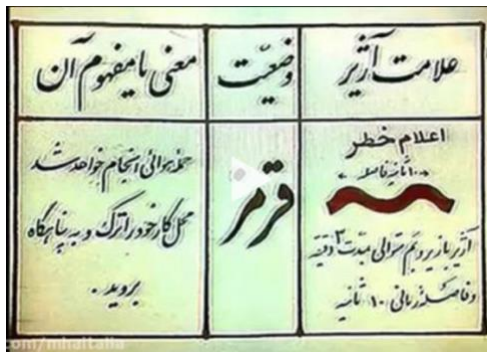 علامت آژیر
وضعیت
معنی یا مفهوم آن
اعلام خطر
۱۰ ثانیه فاصله
آژیر با زیر و بم متوالی بمدت ۳ دقیقه
و فاصله زمانی ۱۰ ثانیه
قرمز
حمله هوائی انجام خواهد شد
محل کار خود را ترک و به پناهگاه
بروید.
.com/mhaitalia